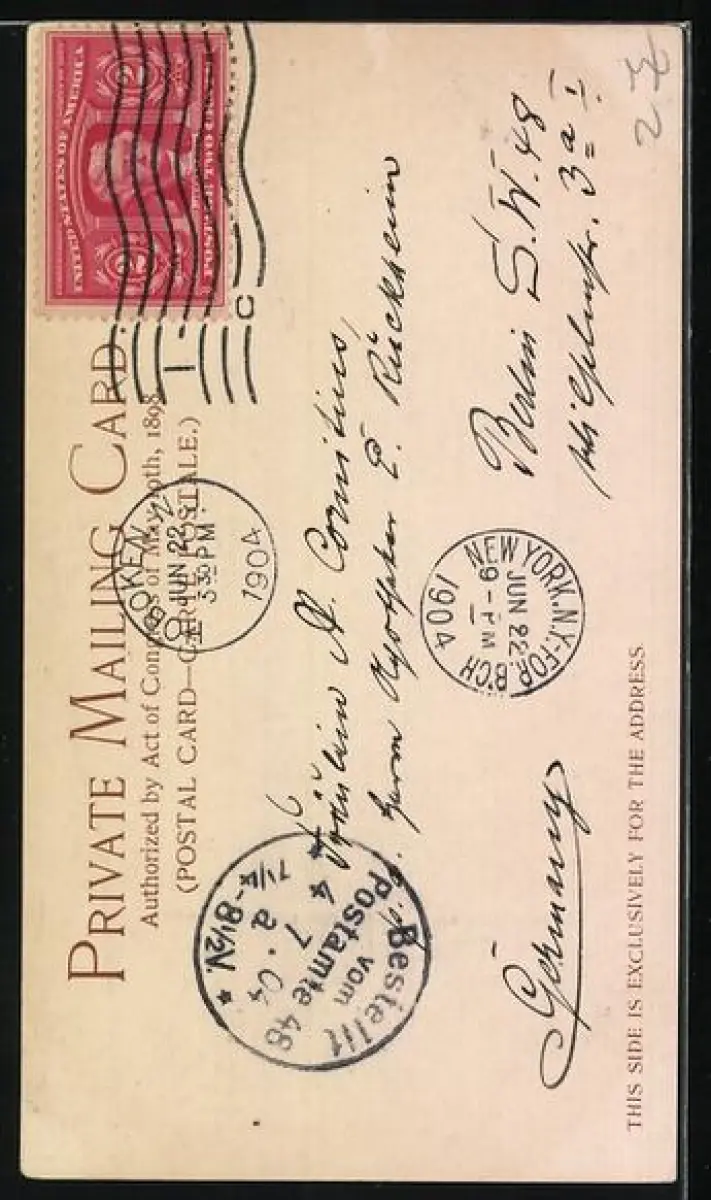 UNITED STATES OF AMERICA
2 2
POSTAGE TWO CENTS
C
1
PRIVATE MAILING CARD.
Authorized by Act of Congress of May 19th, 1898.
(POSTAL CARD—CARTE POSTALE.)
HOBOKEN N.J.
JUN 22
3 30 PM
1904
Fräulein A. Cornitius,
Herrn Apotheker E. Rückheim
NEW YORK, N.Y.-FOR. B'CH
JUN 22
9-PM
1904
Berlin S.W. 48
3a I.
Germany
Bestellt
vom
Postamte 48
4 7. 04
7 1/4-8 1/2 N.
THIS SIDE IS EXCLUSIVELY FOR THE ADDRESS